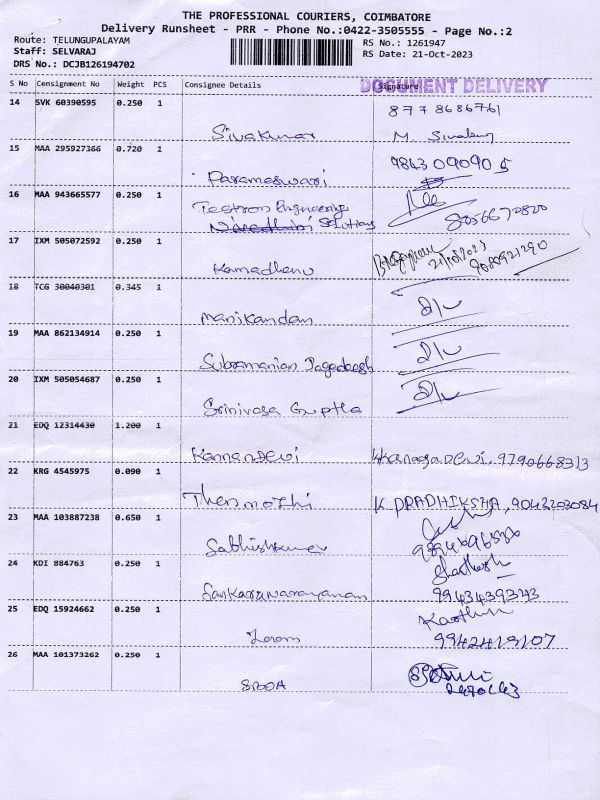 THE PROFESSIONAL COURIERS, COIMBATORE
Delivery Runsheet - PRR - Phone No.:0422-3505555 - Page No.:2
Route: TELUNGUPALAYAM
Staff: SELVARAJ
DRS No.: DCJB126194702
RS No.: 1261947
RS Date: 21-Oct-2023
S No Consignment No Weight PCS Consignee Details Signature
DOCUMENT DELIVERY
14 SVK 60390595 0.250 1
8778686761
Sivakumar
15 MAA 295927366 0.720 1
9843090905
Parameswari
16 MAA 943665577 0.250 1
Testron Engineering
Solutions
8056670820
17 IXM 505072592 0.250 1
Kamadhenu
18 TCG 30040301 0.345 1
Manikandan
19 MAA 862134914 0.250 1
Subramanian Jagadeesh
20 IXM 505054687 0.250 1
Srinivasa Guptha
21 EDQ 12314430 1.200 1
Kannan Devi KanagaDevi, 9790668313
22 KRG 4545975 0.090 1
Thenmozhi K. PRADHIKSHA, 9042203084
23 MAA 103887238 0.650 1
24 KDI 884763 0.250 1
Sankaranarayanan 9943439343
25 EDQ 15924662 0.250 1
Karthik
9942419107
26 MAA 101373262 0.250 1